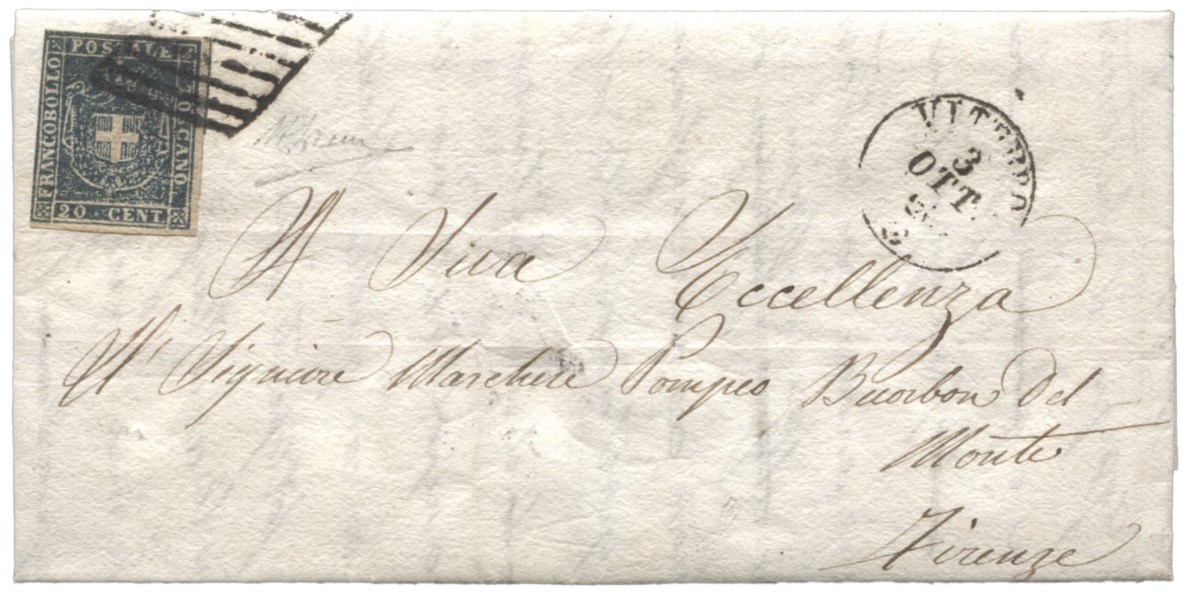 FRANCOBOLLO POSTALE TOSCANO
20 CENT
VITERBO
3
OTT
A Sua Eccellenza
Il Signiore Marchese Pompeo Buorbon Del
Monte
Firenze